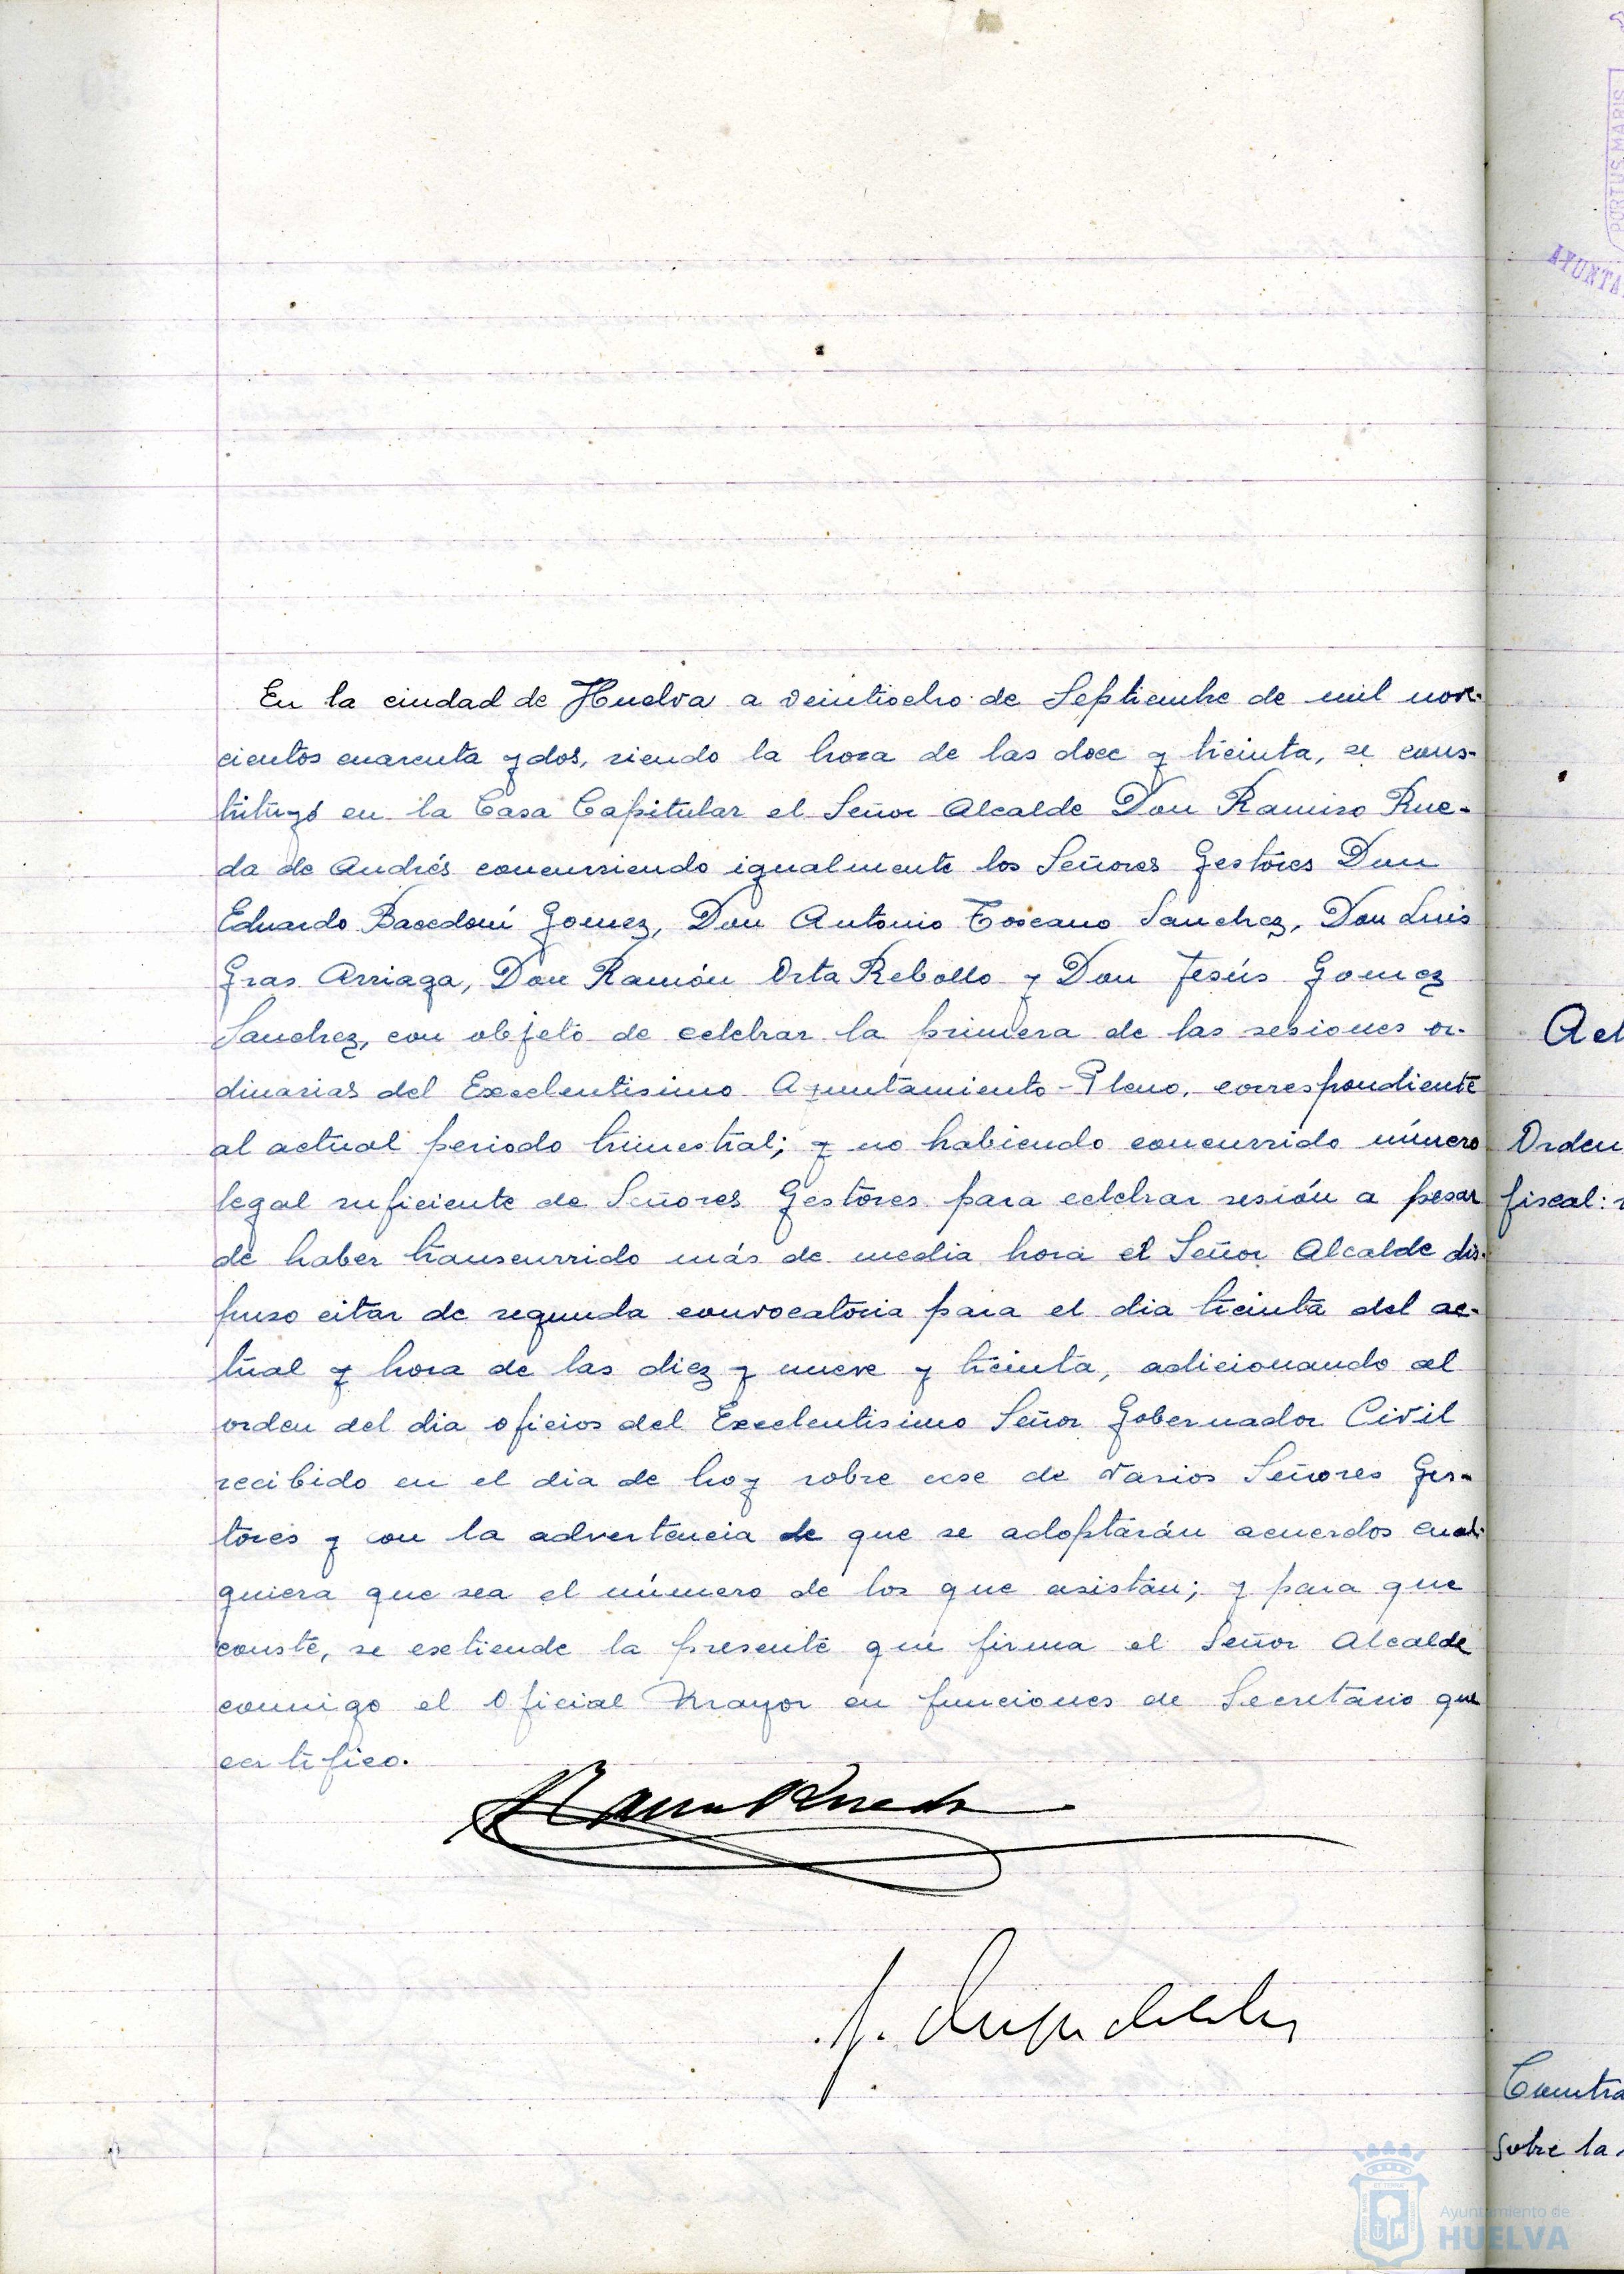 En la ciudad de Huelva a veintiocho de Septiembre de mil nove-
cientos cuarenta y dos, siendo la hora de las doce y treinta, se cons-
tituyó en la Casa Capitular el Señor Alcalde Don Ramiro Rue-
da de Andrés concurriendo igualmente los Señores Gestores Don
Eduardo Bacedoní Gomez, Don Antonio Toscano Sanchez, Don Luis
Gras Arriaga, Don Ramón Orta Rebollo y Don Jesús Gomez
Sanchez, con objeto de celebrar la primera de las sesiones or-
dinarias del Excelentisimo Ayuntamiento-Pleno, correspondiente
al actual periodo trimestral; y no habiendo concurrido número
legal suficiente de Señores Gestores para celebrar sesión a pesar
de haber transcurrido más de media hora el Señor Alcalde dis-
puso citar de segunda convocatoria para el dia treinta del ac-
tual y hora de las diez y nueve y treinta, adicionando al
orden del dia oficios del Excelentisimo Señor Gobernador Civil
recibido en el dia de hoy sobre cese de varios Señores Ges-
tores y con la advertencia de que se adoptarán acuerdos cual-
quiera que sea el número de los que asistan; y para que
conste, se extiende la presente que firma el Señor Alcalde
conmigo el Oficial Mayor en funciones de Secretario que
certifico.
Ramiro Rueda
PORTUS MARIS
AYUNTA
Act
Orden
fiscal:
Contra
sobre la
Ayuntamiento de
HUELVA